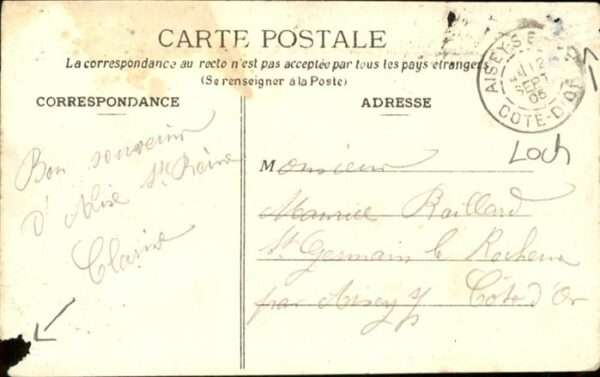 CARTE POSTALE
La correspondance au recto n'est pas acceptée par tous les pays étrangers
(Se renseigner à la Poste)
CORRESPONDANCE
ADRESSE
AISEY-S
12
SEPT
05
COTE-D'OR
Loch
Bon souvenir
d'Alise Ste Reine
Clarisse
Monsieur
Maurice Raillard
St Germain le Rocheux
par Aisey
Côte d'Or